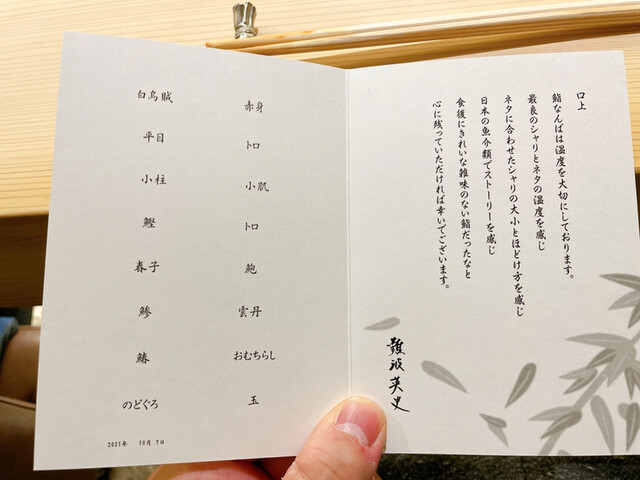 白烏賊
平目
小柱
鰹
春子
鯵
鰆
のどぐろ
赤身
トロ
小肌
トロ
鮑
雲丹
おむちらし
玉
2021年 10月 7日
口上
鮨なんばは温度を大切にしております。
最良のシャリとネタの温度を感じ
ネタに合わせたシャリの大小とほどけ方を感じ
日本の魚介類でストーリーを感じ
食後にきれいな雑味のない鮨だったなと
心に残っていただければ幸いでございます。
難波英史